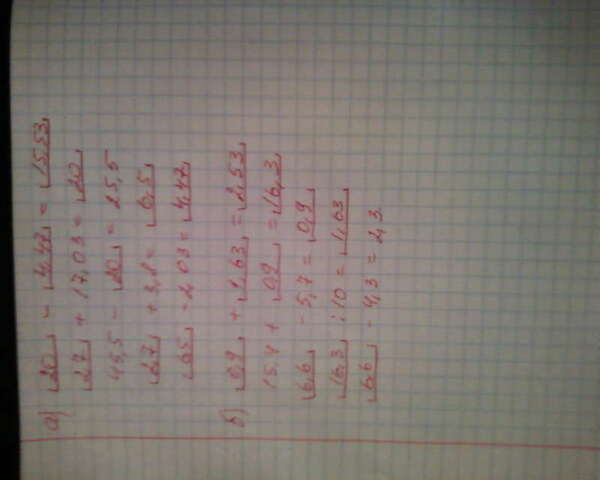 а) 20 - 4,47 = 15,53
2,7 + 17,03 = 20
45,5 - 20 = 25,5
2,7 + 3,8 = 6,5
6,5 - 2,03 = 4,47
б) 0,9 + 1,63 = 2,53
15,4 + 0,9 = 16,3
6,6 - 5,7 = 0,9
16,3 : 10 = 1,63
6,6 - 4,3 = 2,3